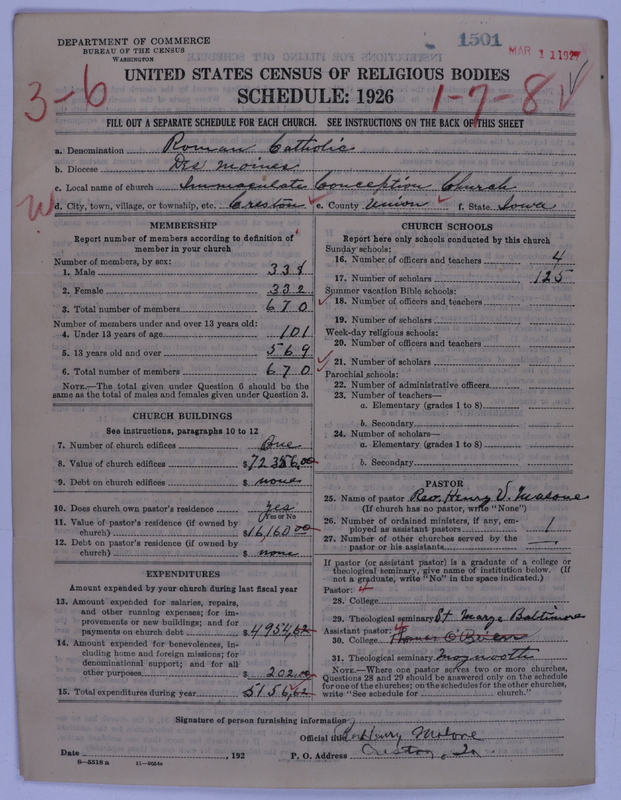 DEPARTMENT OF COMMERCE
BUREAU OF THE CENSUS
WASHINGTON
1501
MAR 11 1927
UNITED STATES CENSUS OF RELIGIOUS BODIES
SCHEDULE: 1926
3-6
1-7-8
FILL OUT A SEPARATE SCHEDULE FOR EACH CHURCH. SEE INSTRUCTIONS ON THE BACK OF THIS SHEET
a. Denomination Roman Catholic
b. Diocese Des Moines
c. Local name of church Immaculate Conception Church
d. City, town, village, or township, etc. Creston e. County Union f. State Iowa
MEMBERSHIP
Report number of members according to definition of member in your church
Number of members, by sex:
1. Male 338
2. Female 332
3. Total number of members 670
Number of members under and over 13 years old:
4. Under 13 years of age 101
5. 13 years old and over 569
6. Total number of members 670
NOTE.—The total given under Question 6 should be the
same as the total of males and females given under Question 3.
CHURCH BUILDINGS
See instructions, paragraphs 10 to 12
7. Number of church edifices One
8. Value of church edifices $72356.00
9. Debt on church edifices $ none
10. Does church own pastor's residence yes
Yes or No
11. Value of pastor's residence (if owned by
church) $16,160.00
12. Debt on pastor's residence (if owned by
church) $ none
EXPENDITURES
Amount expended by your church during last fiscal year
13. Amount expended for salaries, repairs,
and other running expenses; for im-
provements or new buildings; and for
payments on church debt $4954.62
14. Amount expended for benevolences, in-
cluding home and foreign missions; for
denominational support; and for all
other purposes $ 202.00
15. Total expenditures during year $5156.62
CHURCH SCHOOLS
Report here only schools conducted by this church
Sunday schools:
16. Number of officers and teachers 4
17. Number of scholars 125
Summer vacation Bible schools:
18. Number of officers and teachers
19. Number of scholars
Week-day religious schools:
20. Number of officers and teachers
21. Number of scholars
Parochial schools:
22. Number of administrative officers
23. Number of teachers—
a. Elementary (grades 1 to 8)
b. Secondary
24. Number of scholars—
a. Elementary (grades 1 to 8)
b. Secondary
PASTOR
25. Name of pastor Rev. Henry V. Malone
(If church has no pastor, write "None")
26. Number of ordained ministers, if any, em-
ployed as assistant pastors 1
27. Number of other churches served by the
pastor or his assistants —
If pastor (or assistant pastor) is a graduate of a college or
theological seminary, give name of institution below. (If
not a graduate, write "No" in the space indicated.)
Pastor: 4
28. College
29. Theological seminary St Marys Baltimore
Assistant pastor: 4
30. College Thomas O'Brien
31. Theological seminary Moynooth
NOTE.—Where one pastor serves two or more churches,
Questions 28 and 29 should be answered only on the schedule
for one of the churches; on the schedules for the other churches,
write "See schedule for church."
Signature of person furnishing information
Official title Henry Malone
Date , 192 P. O. Address Creston, Ia.
8—5518a 11—9054a